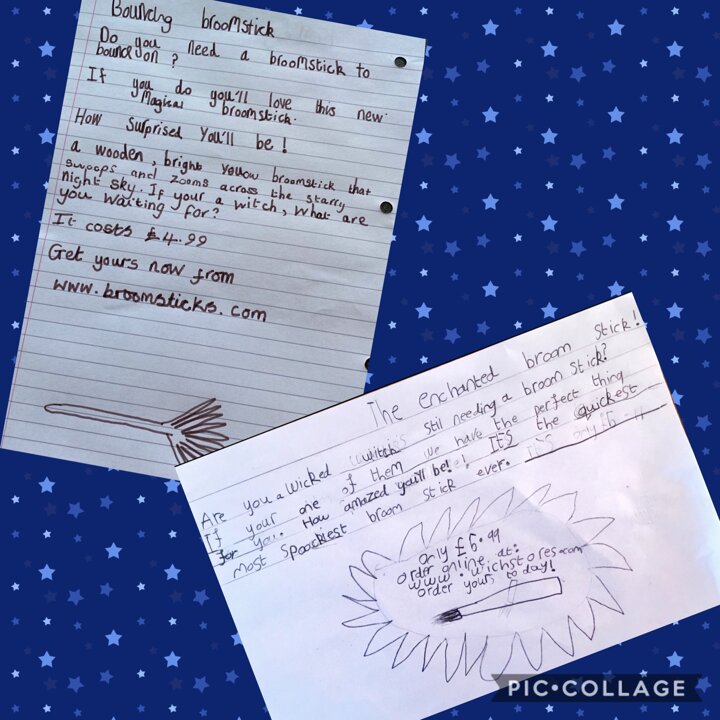 Bouncing broomstick
Do you need a broomstick to
bounce on ?
If you do you'll love this new
Magical broomstick.
How Surprised You'll be !
a wooden, bright yellow broomstick that
swoops and zooms across the starry
night sky. If your a witch, what are
you waiting for?
It costs £4.99
Get yours now from
www.broomsticks.com
The enchanted broom stick!
Are you a wicked witch stil needing a broom stick?
If your one of them we have the perfect thing
for you. How amazed you'll be! ITS the quickest
most spoockiest broom stick ever. ITS only £6
only £6.99
order online at:
www.wichstores.com
order yours to day!
PIC•COLLAGE